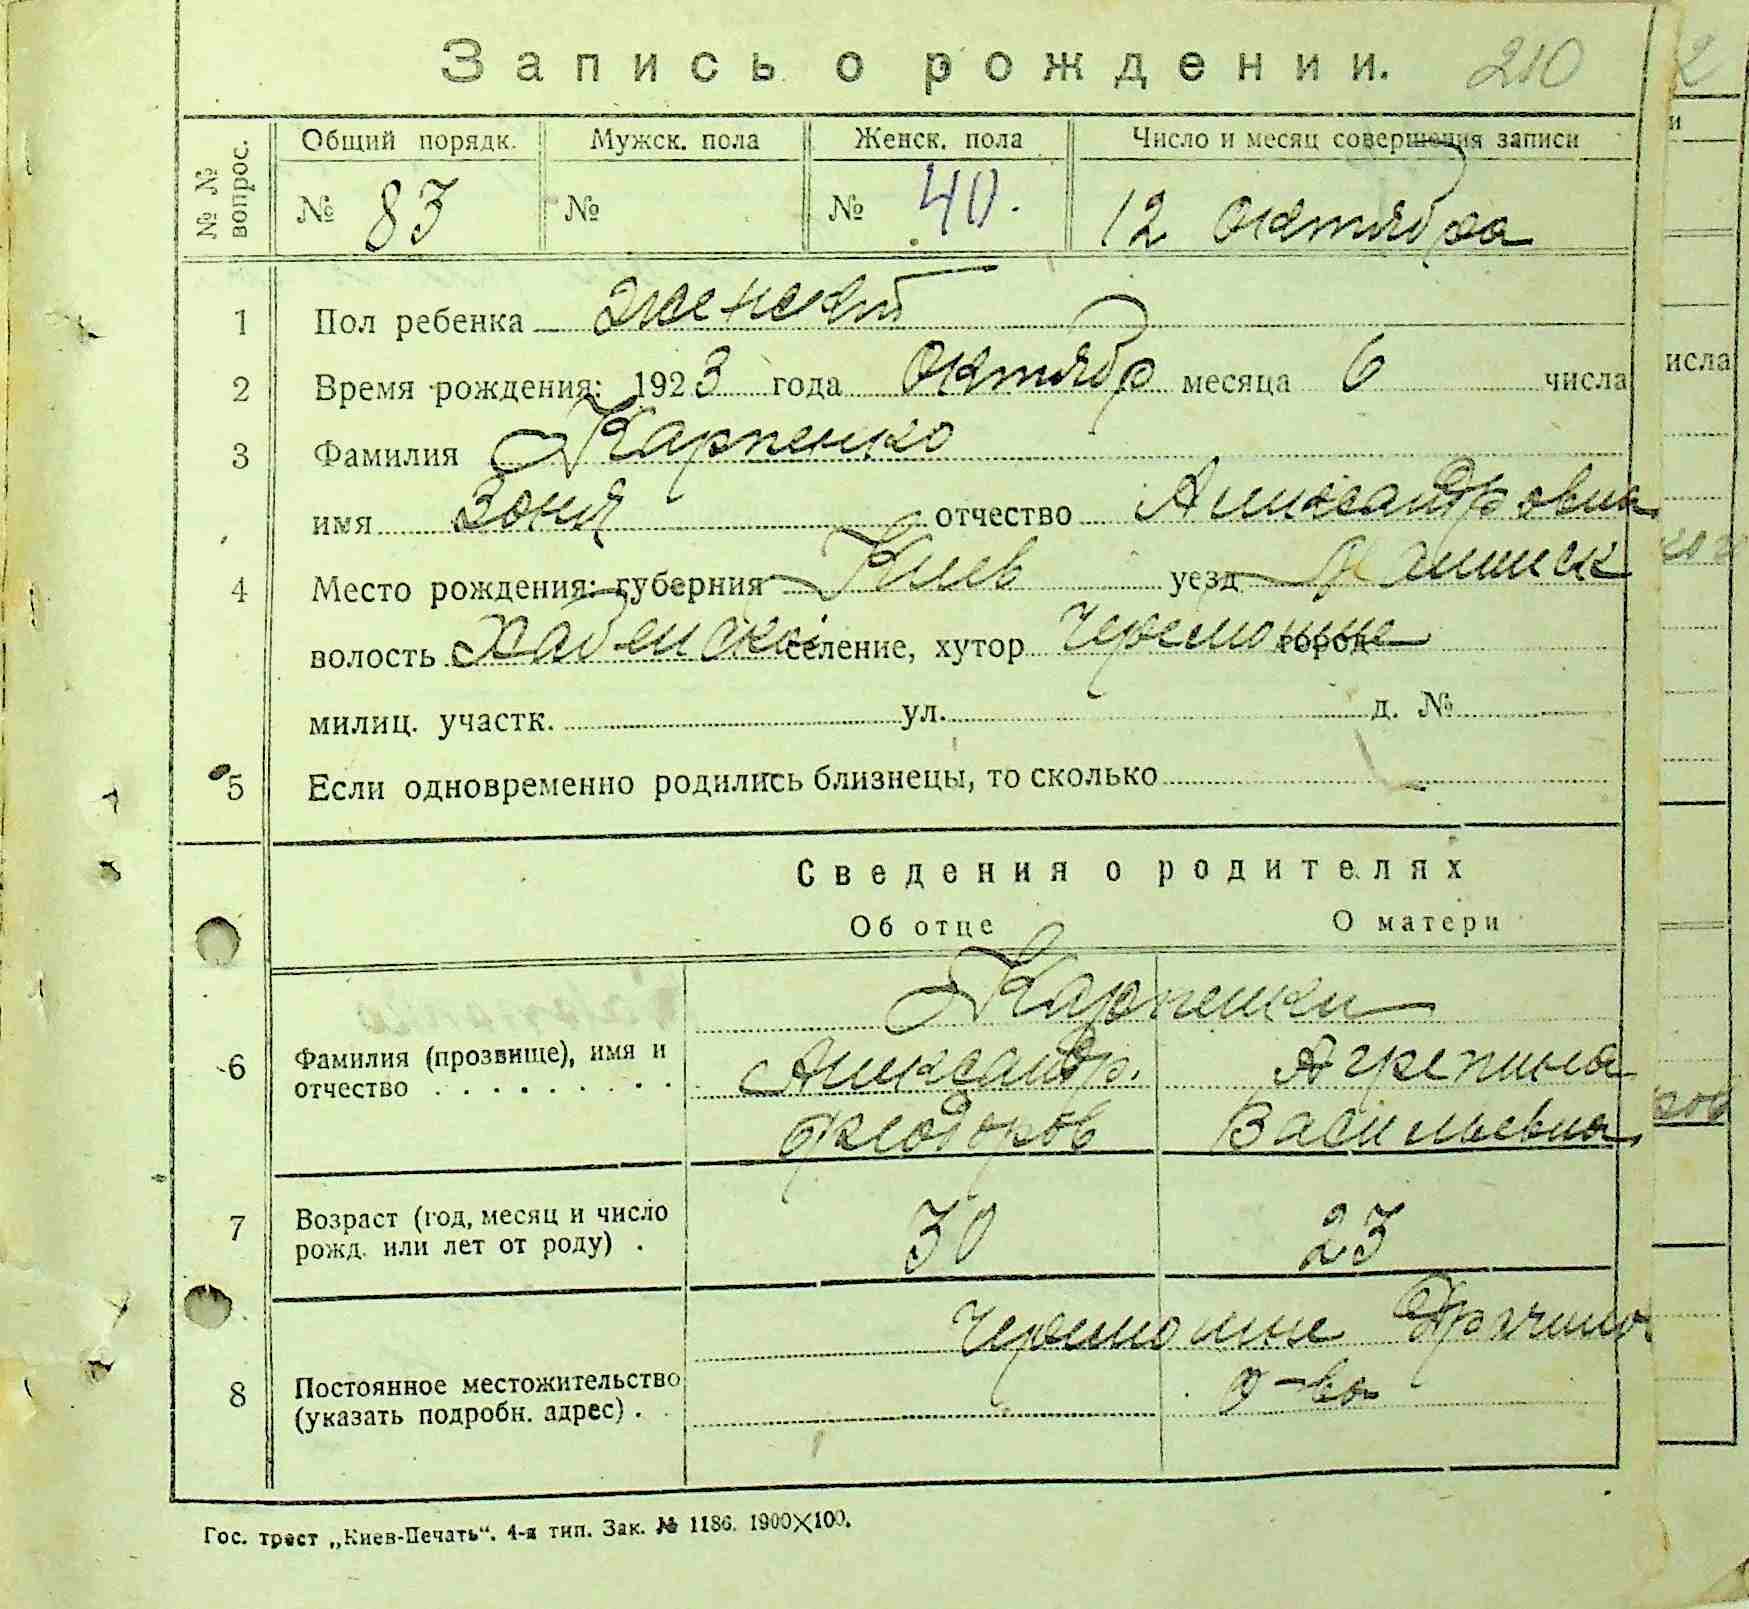 Запись о рождении. 210
№№ вопрос.
Общий порядк. Мужск. пола Женск. пола Число и месяц совершения записи
№ 83 № № 40. 12 октября
1 Пол ребенка женский
2 Время рождения: 1923 года Октябр месяца 6 числа
3 Фамилия Карпенко
имя Зоня отчество Александровна
4 Место рождения: губерния Киев уезд
волость Хабенская селение, хутор Черемошне город
милиц. участк. ул. д. №
5 Если одновременно родились близнецы, то сколько
Сведения о родителях
Об отце О матери
Карпенки
6 Фамилия (прозвище), имя и отчество Александр. Агрепина
Феодоров Васильевна
7 Возраст (год, месяц и число рожд. или лет от роду) . 30 23
Черемошне
8 Постоянное местожительство (указать подробн. адрес) . о-ва
Гос. трест „Киев-Печать“. 4-я тип. Зак. № 1186. 1900×100.
2
и
исла
ров